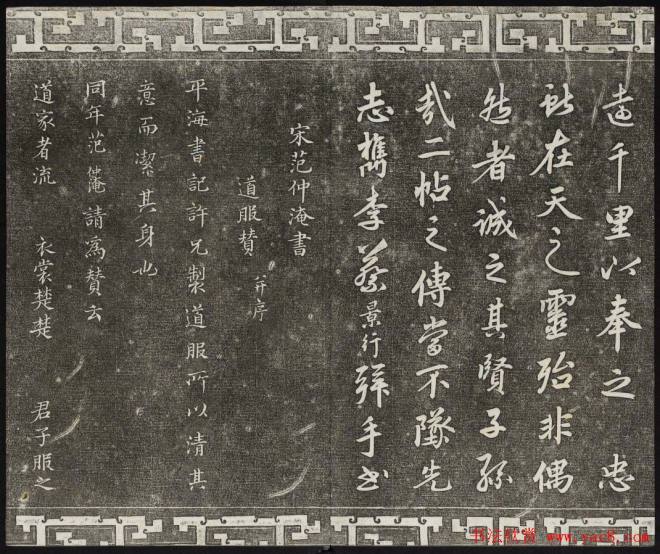 遠千里以奉之 忠
獻在天之靈殆非偶
然者誠之其賢子孫
哉二帖之傳當不墜先
志檇李蔡景行拜手書
宋范仲淹書
道服贊 并序
平海書記許兄製道服所以清其
意而潔其身也
同年范 請為贊云
道家者流 衣裳楚楚 君子服之
书法欣赏 www.yac8.com